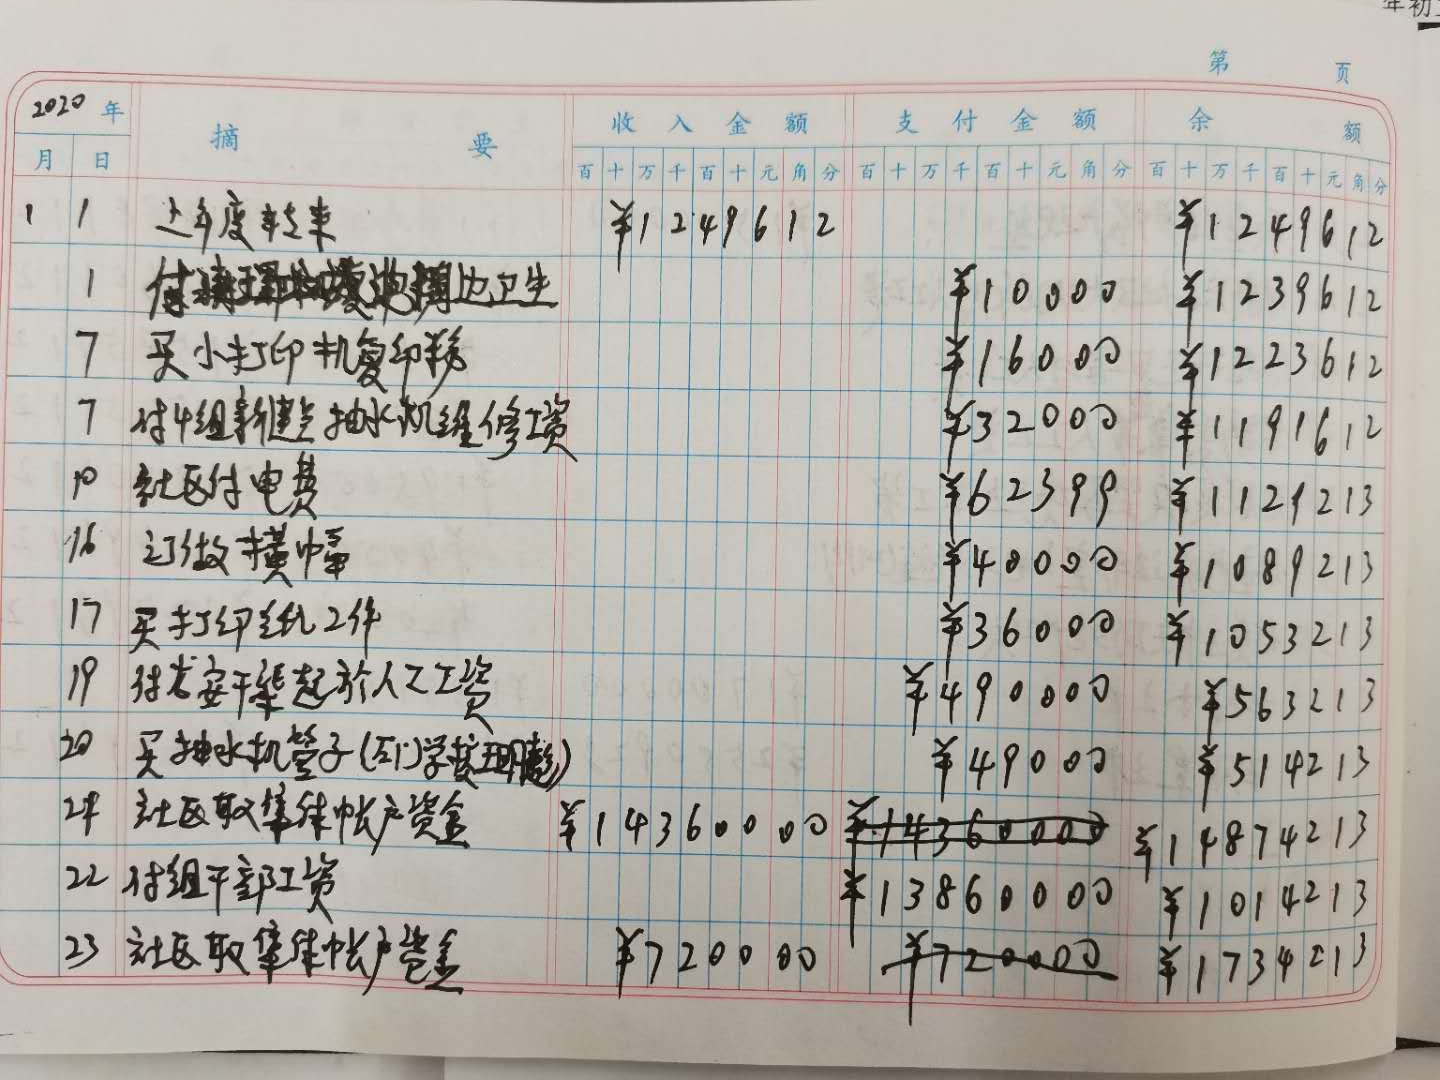 年初
第 页
2020 年 摘 要 收入金额 支付金额 余额
月 日 百十万千百十元角分 百十万千百十元角分 百十万千百十元角分
1 1 上年度转来 ¥1249612 ¥1249612
1 付 边卫生 ¥10000 ¥1239612
7 买小打印机复印 ¥16000 ¥1223612
7 付4组新建 抽水机维修工资 ¥32000 ¥1191612
10 社区付电费 ¥62399 ¥1129213
16 订做横幅 ¥40000 ¥1089213
17 买打印纸2件 ¥36000 ¥1053213
19 付 安干渠起 人工工资 ¥490000 ¥563213
20 买抽水机管子( 学校 ) ¥49000 ¥514213
21 社区取集体帐户资金 ¥14360000 ¥14360000 ¥14874213
22 付组干部工资 ¥13860000 ¥1014213
23 社区取集体帐户资金 ¥720000 ¥720000 ¥1734213